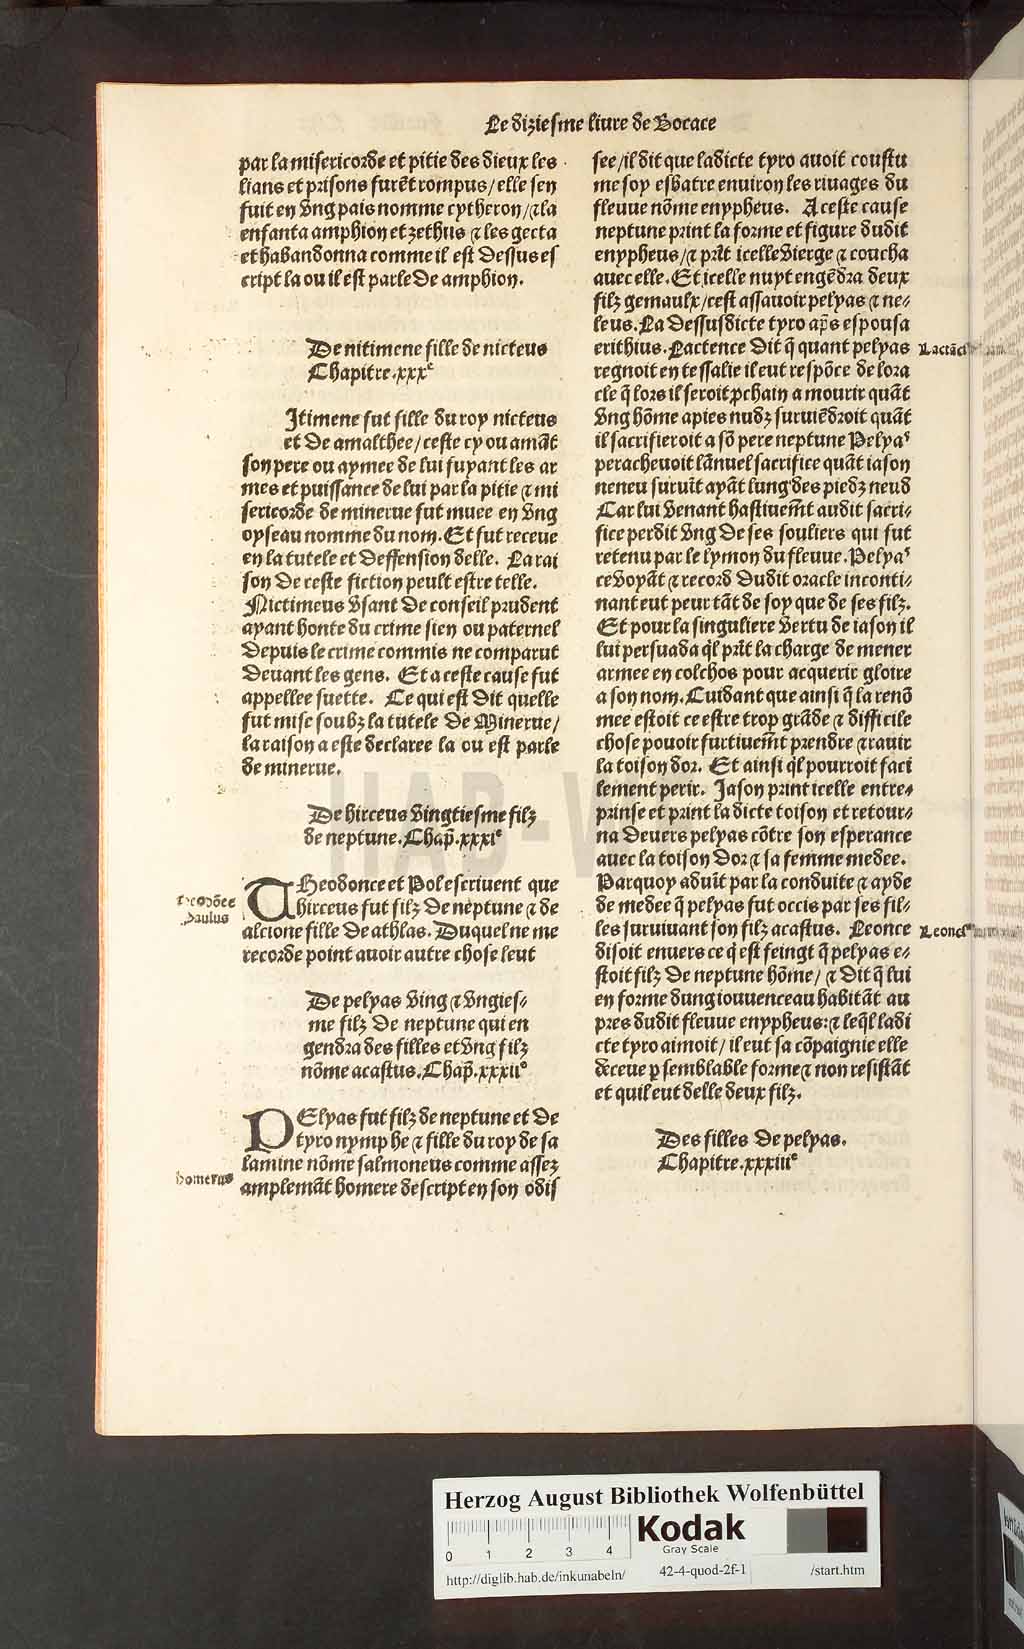 Le diziesme liure de Bocace
par la misericorde et pitie des dieux les
lians et prisons furēt rompus/elle sen
fuit en vng pais nomme cytheron/⁊ la
enfanta amphion et zethus ⁊ les gecta
et habandonna comme il est dessus es
cript la ou il est parle de amphion.
De nitimene fille de nicteus
Chapitre.xxxe
Itimene fut fille du roy nicteus
et de amalthee/ceste cy ou amāt
son pere ou aymee de lui fuyant les ar
mes et puissance de lui par la pitie ⁊ mi
sericorde de minerue fut muee en vng
oyseau nomme du nom. Et fut receue
en la tutele et deffension delle. La rai
son de ceste fiction peult estre telle.
Nictimeus vsant de conseil prudent
ayant honte du crime sien ou paternel
depuis le crime commis ne comparut
deuant les gens. Et a ceste cause fut
appellee suette. Ce qui est dit quelle
fut mise soubz la tutele de Minerue/
la raison a este declaree la ou est parle
de minerue.
De hirceus vingtiesme filz
de neptune.Chap̄.xxxie
Theodōce
Paulus
THeodonce et Pol escriuent que
hirceus fut filz de neptune ⁊ de
alcione fille de athlas. Duquel ne me
recorde point auoir autre chose leut
De pelyas ving ⁊ vngies/
me filz de neptune qui en
gendra des filles et vng filz
nōme acastus.Chap̄.xxxiie
PElyas fut filz de neptune et de
tyro nymphe ⁊ fille du roy de sa
lamine nōme salmoneus comme assez
homerus
amplemāt homere descript en son odis
see/il dit que ladicte tyro auoit coustu
me soy esbatre enuiron les riuages du
fleuue nōme enypheus. A ceste cause
neptune print la forme et figure dudit
enypheus/⁊ prīt icelle vierge ⁊ coucha
auec elle. Et icelle nuyt engēdra deux
filz gemaulx/cest assauoir pelyas ⁊ ne/
leus. La dessusdicte tyro ap̄s espousa
erithius. Lactence dit q̄ quant pelyas
regnoit en tessalie il eut respōce de lora
cle q̄ lors il seroit ꝓchain a mourir quāt
vng hōme apies nudz suruiēdroit quāt
il sacrifieroit a sō pere neptune Pelyaꝰ
peracheuoit lānuel sacrifice quāt iason
neneu suruīt ayāt lung des piedz neud
Car lui venant hastiuemt̄ audit sacri/
fice perdit vng de ses souliers qui fut
retenu par le lymon du fleuue. Pelyaꝰ
ce voyāt ⁊ record dudit oracle inconti/
nant eut peur tāt de soy que de ses filz.
Et pour la singuliere vertu de iason il
lui persuada q̄l prīt la charge de mener
armee en colchos pour acquerir gloire
a son nom. Cuidant que ainsi q̄ la renō
mee estoit ce estre trop grāde ⁊ difficile
chose pouoir furtiuemt̄ prendre ⁊ rauir
la toison dor. Et ainsi q̄l pourroit faci
lement perir. Jason print icelle entre/
prinse et print la dicte toison et retour/
na deuers pelyas cōtre son esperance
auec la toison dor ⁊ sa femme medee.
Parquoy aduīt par la conduite ⁊ ayde
de medee q̄ pelyas fut occis par ses fil/
les suruiuant son filz acastus. Leonce
disoit enuers ce q̄ est feingt q̄ pelyas e/
stoit filz de neptune hōme/⁊ dit q̄ lui
en forme dung iouuenceau habitāt au
pres dudit fleuue enypheus:⁊ leq̄l ladi
cte tyro aimoit/il eut sa cōpaignie elle
deceue ꝑ semblable forme ⁊ non resistāt
et quil eut delle deux filz.
Des filles de pelyas.
Chapitre.xxxiiie
HAB-WF
Herzog August Bibliothek Wolfenbüttel
0 1 2 3 4
Kodak
Gray Scale
http://diglib.hab.de/inkunabeln/ 42-4-quod-2f-1 /start.htm